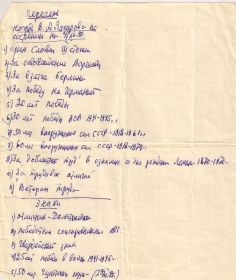 Перечень
наград В. А. Захарова по
состоянию на
1) Орден Славы III степени
2) За освобождение Варшавы
3) За взятие Берлина
4) За победу над Германией
5) 20 лет победы
6) 30 лет победы ВОВ 1941-1945 г.
7) 50 лет вооруженных сил СССР 1918-1968 г.
8) 60 лет вооруженных сил СССР
9) За доблестный труд В ознам. 100 лет со дня рождения Ленина 1870-1970
10) За трудовое отличие
11) Ветеран труда
Знаки
1) Отличник
2) Победитель соцсоревнования
3) Гвардейский знак
4) 25 лет победы в войне 1941-1945 г.
5) 50 лет